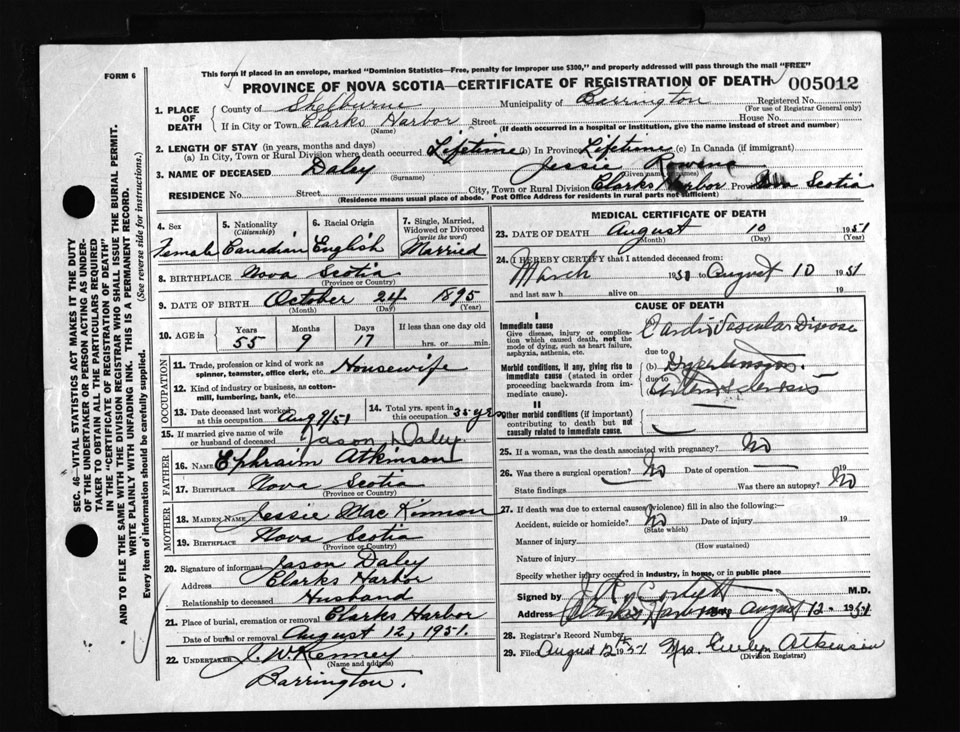 FORM 6
This form if placed in an envelope, marked "Dominion Statistics—Free, penalty for improper use $300," and properly addressed will pass through the mail "FREE"
PROVINCE OF NOVA SCOTIA—CERTIFICATE OF REGISTRATION OF DEATH 005012
1. PLACE OF DEATH
County of Shelburne Municipality of Barrington Registered No.
(For use of Registrar General only)
If in City or Town Clarks Harbor Street House No.
(Name) (If death occurred in a hospital or institution, give the name instead of street and number)
2. LENGTH OF STAY (in years, months and days)
(a) In City, Town or Rural Division where death occurred Lifetime (b) In Province Lifetime (c) In Canada (if immigrant)
3. NAME OF DECEASED Daley Jessie Rowena
(Surname) (Given names)
RESIDENCE No. Street City, Town or Rural Division Clarks Harbor Province Nova Scotia
(Residence means usual place of abode. Post Office Address for residents in rural parts not sufficient)
SEC. 46—VITAL STATISTICS ACT MAKES IT THE DUTY
OF THE UNDERTAKER OR PERSON ACTING AS UNDERTAKER
TO OBTAIN ALL THE PARTICULARS REQUIRED
IN THE "CERTIFICATE OF REGISTRATION OF DEATH"
AND TO FILE THE SAME WITH THE DIVISION REGISTRAR WHO SHALL ISSUE THE BURIAL PERMIT.
WRITE PLAINLY WITH UNFADING INK. THIS IS A PERMANENT RECORD.
Every item of information should be carefully supplied. (See reverse side for instructions.)
4. Sex 5. Nationality (Citizenship) 6. Racial Origin 7. Single, Married, Widowed or Divorced (write the word)
Female Canadian English Married
8. BIRTHPLACE Nova Scotia
(Province or Country)
9. DATE OF BIRTH October 24 1895
(Month) (Day) (Year)
10. AGE in Years Months Days If less than one day old
55 9 17 hrs. or min.
OCCUPATION
11. Trade, profession or kind of work as spinner, teamster, office clerk, etc. Housewife
12. Kind of industry or business, as cotton-mill, lumbering, bank, etc.
13. Date deceased last worked at this occupation Aug 9/51 14. Total yrs. spent in this occupation 35 yrs
15. If married give name of wife or husband of deceased Jason Daley
FATHER
16. NAME Ephraim Atkinson
17. BIRTHPLACE Nova Scotia
(Province or Country)
MOTHER
18. MAIDEN NAME Jessie MacKinnon
19. BIRTHPLACE Nova Scotia
(Province or Country)
20. Signature of informant Jason Daley
Address Clarks Harbor
Relationship to deceased Husband
21. Place of burial, cremation or removal Clarks Harbor
Date of burial or removal August 12, 1951.
22. UNDERTAKER J. W. Kenney
(Name and address)
Barrington.
MEDICAL CERTIFICATE OF DEATH
23. DATE OF DEATH August 10 1951
(Month) (Day) (Year)
24. I HEREBY CERTIFY that I attended deceased from:
March 1951 to August 10 1951
and last saw h alive on 19
CAUSE OF DEATH
I
Immediate cause
Give disease, injury or complication which caused death, not the mode of dying, such as heart failure, asphyxia, asthenia, etc.
Cardio Vascular Disease
due to
Morbid conditions, if any, giving rise to immediate cause (stated in order proceeding backwards from immediate cause).
(b) Hypertension
due to
II
Other morbid conditions (if important) contributing to death but not causally related to immediate cause.
25. If a woman, was the death associated with pregnancy? No
26. Was there a surgical operation? No Date of operation — 19
State findings Was there an autopsy? No
27. If death was due to external causes (violence) fill in also the following:—
Accident, suicide or homicide? No Date of injury 19
(State which)
Manner of injury
(How sustained)
Nature of injury
Specify whether injury occurred in industry, in home, or in public place
Signed by M.D.
Address Clarks Harbour August 12 - 1951
28. Registrar's Record Number
29. Filed August 12th 1951 Mrs. Evelyn Atkinson
(Division Registrar)